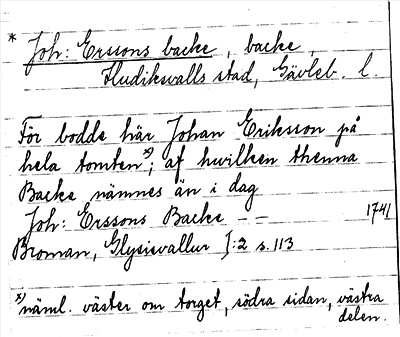 * Joh: Erssons backe, backe,
Hudiksvalls stad, Gävleb. l.
För bodde här Johan Eriksson på
hela tomten x); af hwilken thenna
Backe nämnes än i dag
Joh: Erssons Backe – – 1741
Broman, Glysisvallur I:2 s. 113
x) näml. väster om torget, södra sidan, västra
delen.